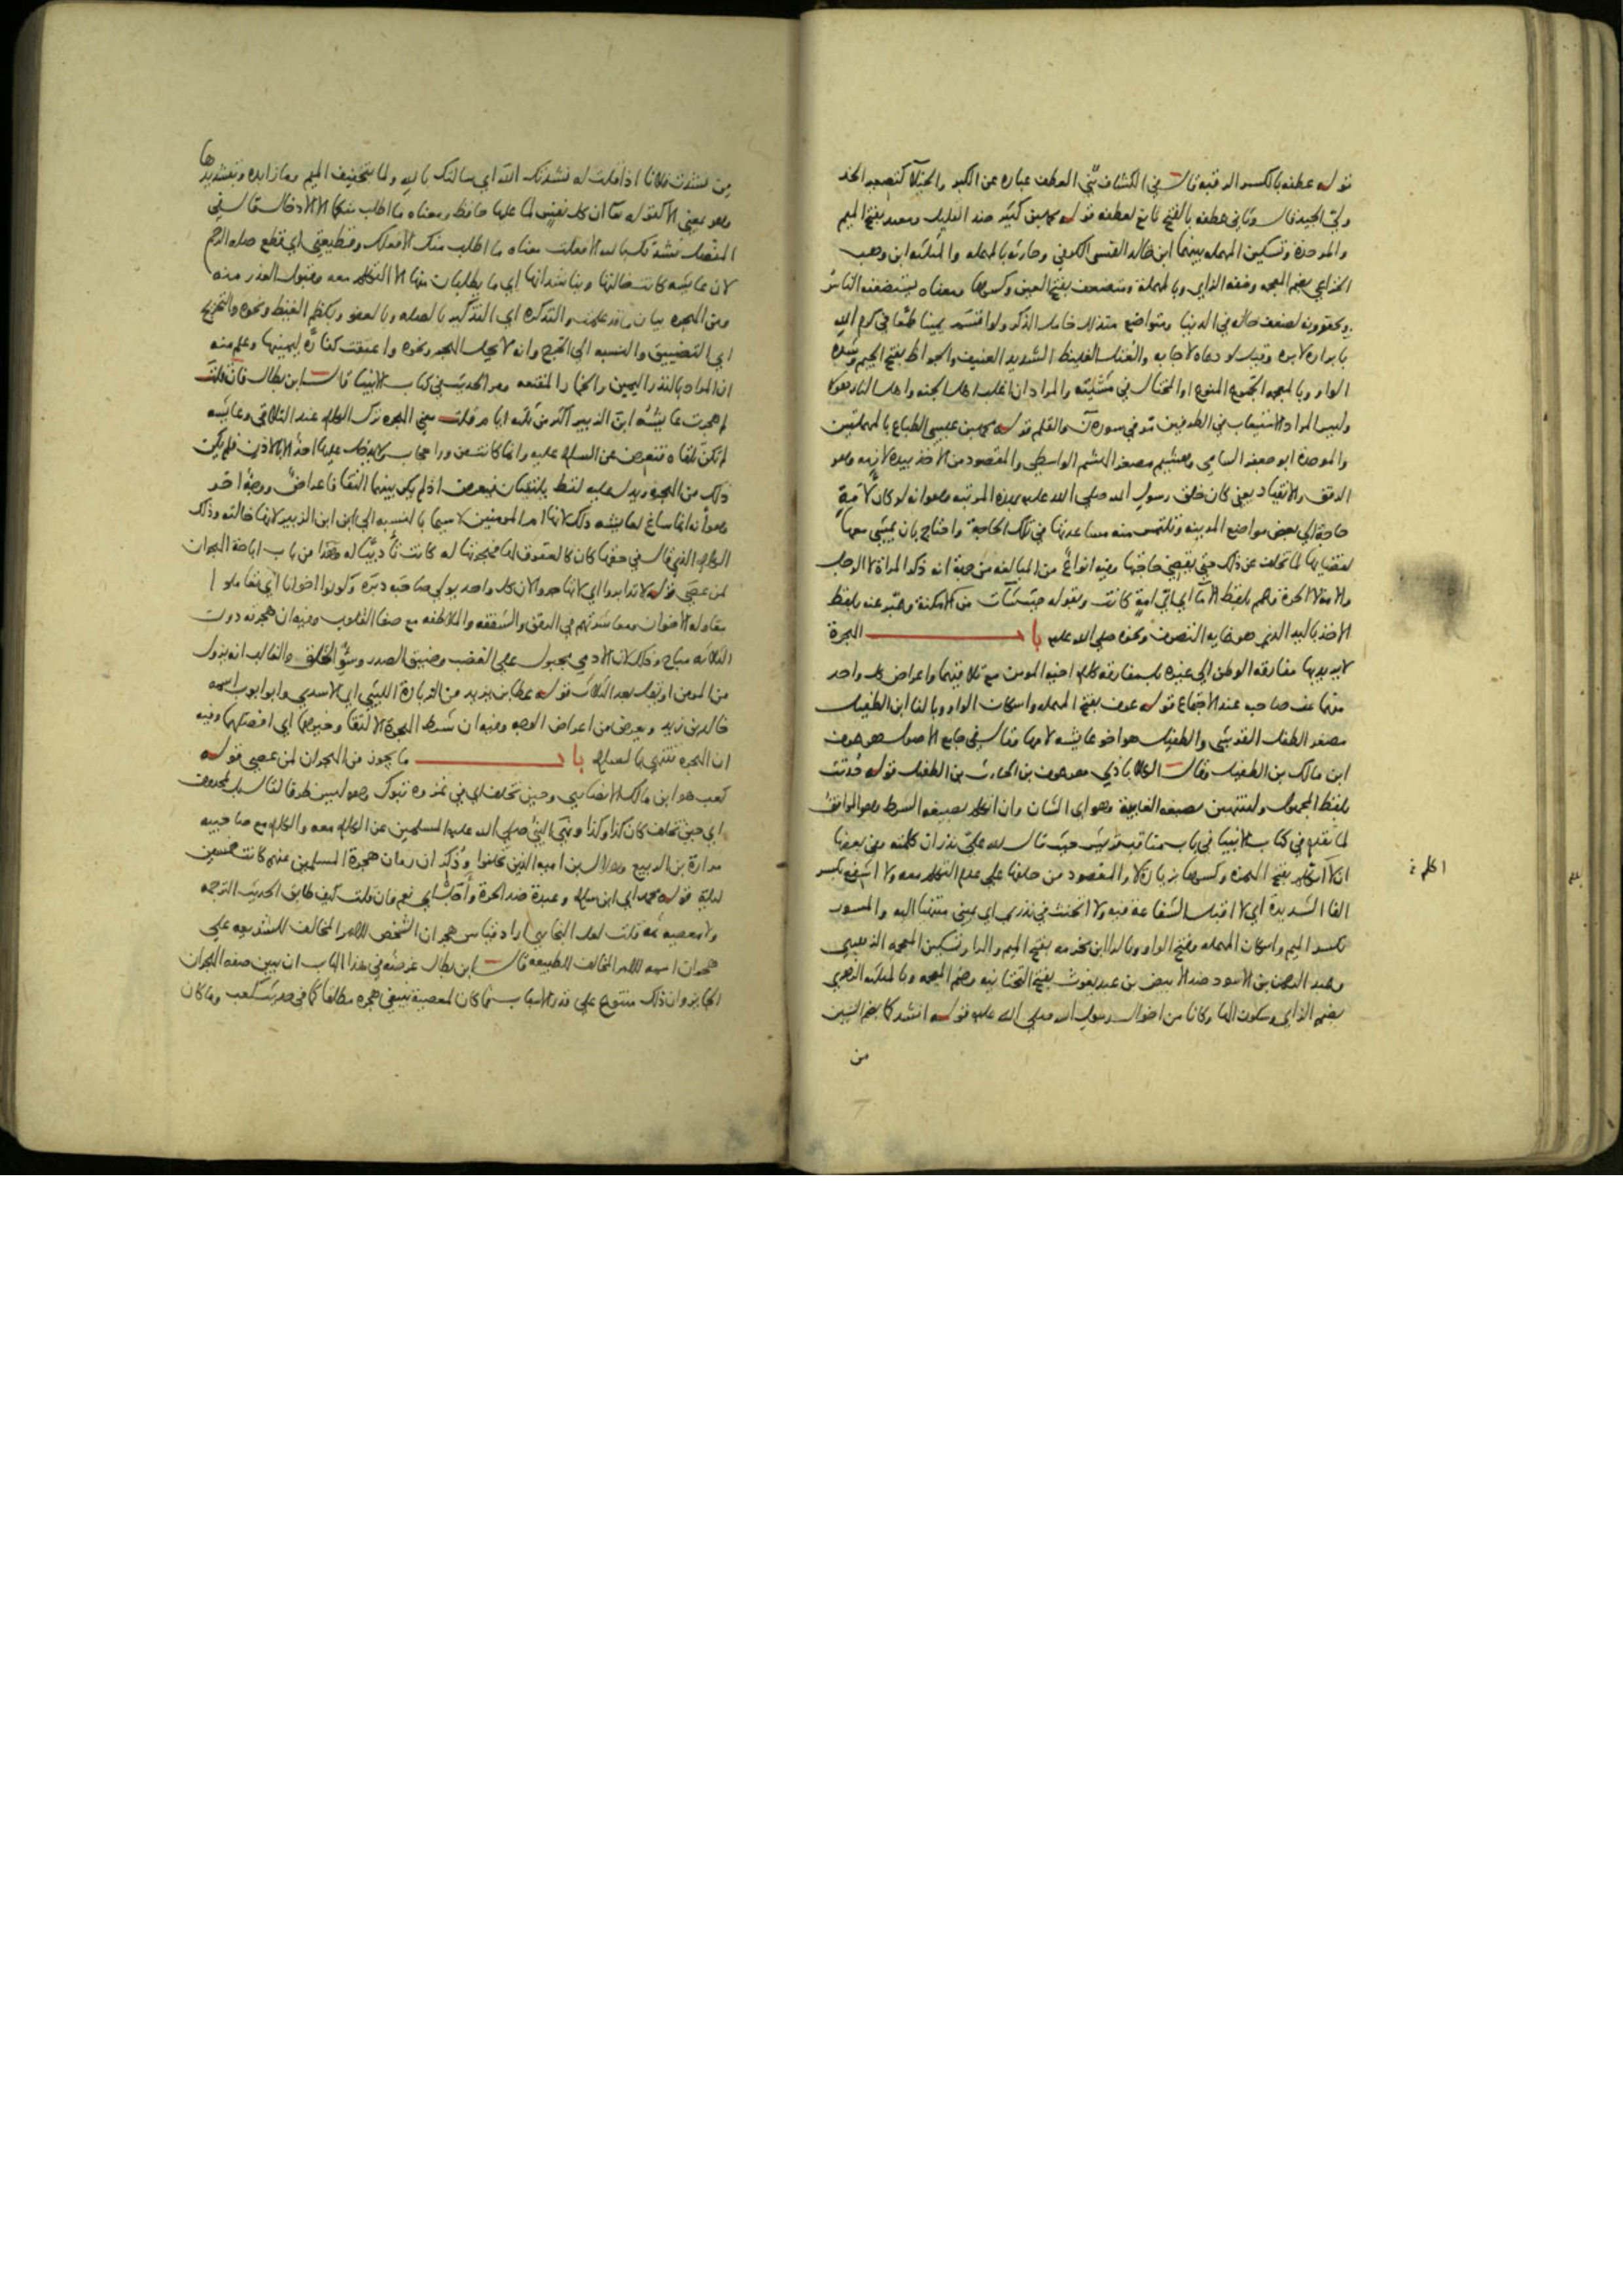 قوله عطفه بالكسر الرقبة قال في الكشاف ثني العطف عبارة عن الكبر والخيلا كتصعير الخد
ولي الجيد قال وثاني عطفه بالفتح مانع تعطفه قوله محمد بن كثير ضد القليل ومعبد بفتح الميم
والموحدة وتسكين المهمله بينهما ابن خالد القيسي الكوفي وحارثه بالمهمله والمثلثه ابن وهب
الخزاعي بضم المعجمه وخفه الزاي وبالمهملة ومتضعف بفتح العين وكسرها ومعناه يستضعفه الناس
ويحتقرونه لضعف حاله في الدنيا ومتواضع متذلل خامل الذكر ولو اقسم يمينا طمعا في كرم الله
بابراره لابره وقيل لو دعاه لاجابه والعتل الغليظ الشديد العنيف والجواظ بفتح الجيم وشدة
الواو وبالمعجمه الجموع المنوع او المختال في مشيته والمراد ان اغلب اهل الجنه واهل النار هولا
وليس المراد الاستيعاب في الطرفين مر في سورة ن والقلم قوله محمد بن عيسى الطباع بالمهملتين
والموحدة ابو جعفر الشامي وهشيم مصغر الهشم الواسطي والمقصود من الاخذ بيده لازمه وهو
الرفق والانقياد يعني كان خلق رسول الله صلى الله عليه بهذه المرتبه وهو انه لو كان لامة
حاجة الى بعض مواضع المدينه وتلتمس منه مساعدتها في تلك الحاجة واحتاج بان يمشي معها
لقضايها لما تخلف عن ذلك حتى يقضي حاجتها وفيه انواع من المبالغه من جهة انه ذكر المراة لا الرجل
والامة لا الحرة وعمم بلفظ الاما اي اي امة كانت وبقوله حيث شات من الامكنة وعبر عنه بلفظ
الاخذ باليد الذي هو غايه التصرف ونحوه صلى الله عليه باب الهجرة
لا يريد بها مفارقه الوطن الى غيره بل مفارقه كلام اخيه المومن مع تلاقيهما واعراض كل واحد
منهما عن صاحبه عند الاجتماع قوله عوف بفتح المهمله واسكان الواو وبالفا ابن الطفيل
مصغر الطفل القرشي والطفيل هو اخو عايشه لامها وقال في جامع الاصول هو عوف
ابن مالك بن الطفيل وقال الكلاباذي هو عوف بن الحارث بن الطفيل قوله حدثت
بلفظ المجهول ولتنتهين بصيغه الغايبة وهو اي الشان وان اتكلم بصيغه الشرط وهو الموافق
لما تقدم في كتاب الانبيا في باب مناقب قريش حيث قال لله علي نذر ان كلمته وفي بعضها
ان لا اتكلم بفتح الهمزه وكسرها بزيادة لا والمقصود من حلفها على عدم التكلم معه ولا اشفع بكسر
الفا الشديدة اي لا اقبل الشفاعة فيه ولا اتحنث في نذري اي يميني منتهيا اليه والمسور
بكسر الميم واسكان المهمله وفتح الواو وبالرا ابن مخرمه بفتح الميم والرا وتسكين المعجمه الذي بينهما
وعبد الرحمن بن الاسود ضد الابيض بن عبد يغوث بفتح التحتانيه وضم المعجمه وبالمثلثه الزهري
بضم الزاي وسكون الها وكانا من اخوال رسول الله صلى الله عليه قوله انشدكما بضم الشين
من
اكلم
من نشدت فلانا اذا قلت له نشدتك الله اي سالتك بالله ولما بتخفيف الميم وما زايده وبتشديدها
وهو بمعنى الا كقوله تعالى ان كل نفس لما عليها حافظ ومعناه ما اطلب منكما الا الادخال قال في
المفصل نشدتك بالله الا فعلت معناه ما اطلب منك الا فعلك وقطيعتي اي قطع صله الرحم
لان عايشه كانت خالتها ويناشدانها اي ما يطلبان منها الا التكلم معه وقبول العذر منه
ومن الهجره بيان ما قد علمت والتذكرة اي التذكير بالصله وبالعفو وبكظم الغيظ ونحوه والتحريج
اي التضييق والنسبه الى الحرج وانه لا يحل الهجر ونحوه واعتقت كفارة ليمينها وعلم منه
ان المراد بالنذر اليمين والخمار المقنعه ومر الحديث في كتاب الانبيا قال ابن بطال فان قلت
لم هجرت عايشه ابن الزبير اكثر من ثلثه ايام قلت معنى الهجره ترك الكلام عند التلاقي وعايشه
لم تكن تلقاه فتعرض عن السلام عليه وانما كانت من ورا حجاب لا يدخل عليها احد الا بالاذن فلم يكن
ذلك من الهجره ويدل عليه لفظ يلتقيان فيعرض اذ لم يكن بينهما التقا فاعراض ووجه اخر
وهو انه انما ساغ لعايشه ذلك لانها ام المومنين لا سيما بالنسبه الى ابن الزبير لانها خالته وذلك
الكلام الذي قال في حقها كان كالعقوق لها فهجرتها له كانت تاديبا له وهذا من باب اباحة الهجران
لمن عصى قوله لا تدابروا اي لا تهاجروا لان كل واحد يولي صاحبه دبره وكونوا اخوانا اي تعاملوا
معاملة الاخوان ومعاشرتهم في الرفق والشفقه والملاطفه مع صفا القلوب وفيه ان هجرته دون
الثلاثه مباح وذلك لان الادمي مجبول على الغضب وضيق الصدر وسوء الخلق والغالب انه يزول
من المومن او يقل بعد الثلاث قوله عطا بن يزيد من الزيادة الليثي اي الاسدي وابو ايوب اسمه
خالد بن زيد ويعرض من اعراض الوجه وفيه ان شرط الهجرة الالتقا وخيرهما اي افضلهما وفيه
ان الهجره تنتهي بالسلام باب ما يجوز من الهجران لمن عصى قوله
كعب هو ابن مالك الانصاري وحين تخلف اي في غزوه تبوك وهو ليس ظرفا لقال بل لمحذوف
اي حين تخلف كان كذا وكذا ونهى النبي صلى الله عليه المسلمين عن الكلام معه والكلام مع صاحبيه
مرارة بن الربيع وهلال بن اميه الذين تخلفوا وذكر ان زمان هجرة المسلمين عنهم كانت خمسين
ليلة قوله محمد اي ابن سلام وعبدة ضد الحرة وأجل اي نعم فان قلت كيف طابق الحديث الترجمه
ولا معصيه ثمه قلت لعل البخاري اراد قياس هجران الشخص للامر المخالف للشريعه على
هجران اسمه للامر المخالف للطبيعه قال ابن بطال غرضه في هذا الباب ان يبين صفه الهجران
الجايز وان ذلك متنوع على قدر الاسباب فما كان لمعصية ينبغي هجره مطلقا كما في حديث كعب وما كان